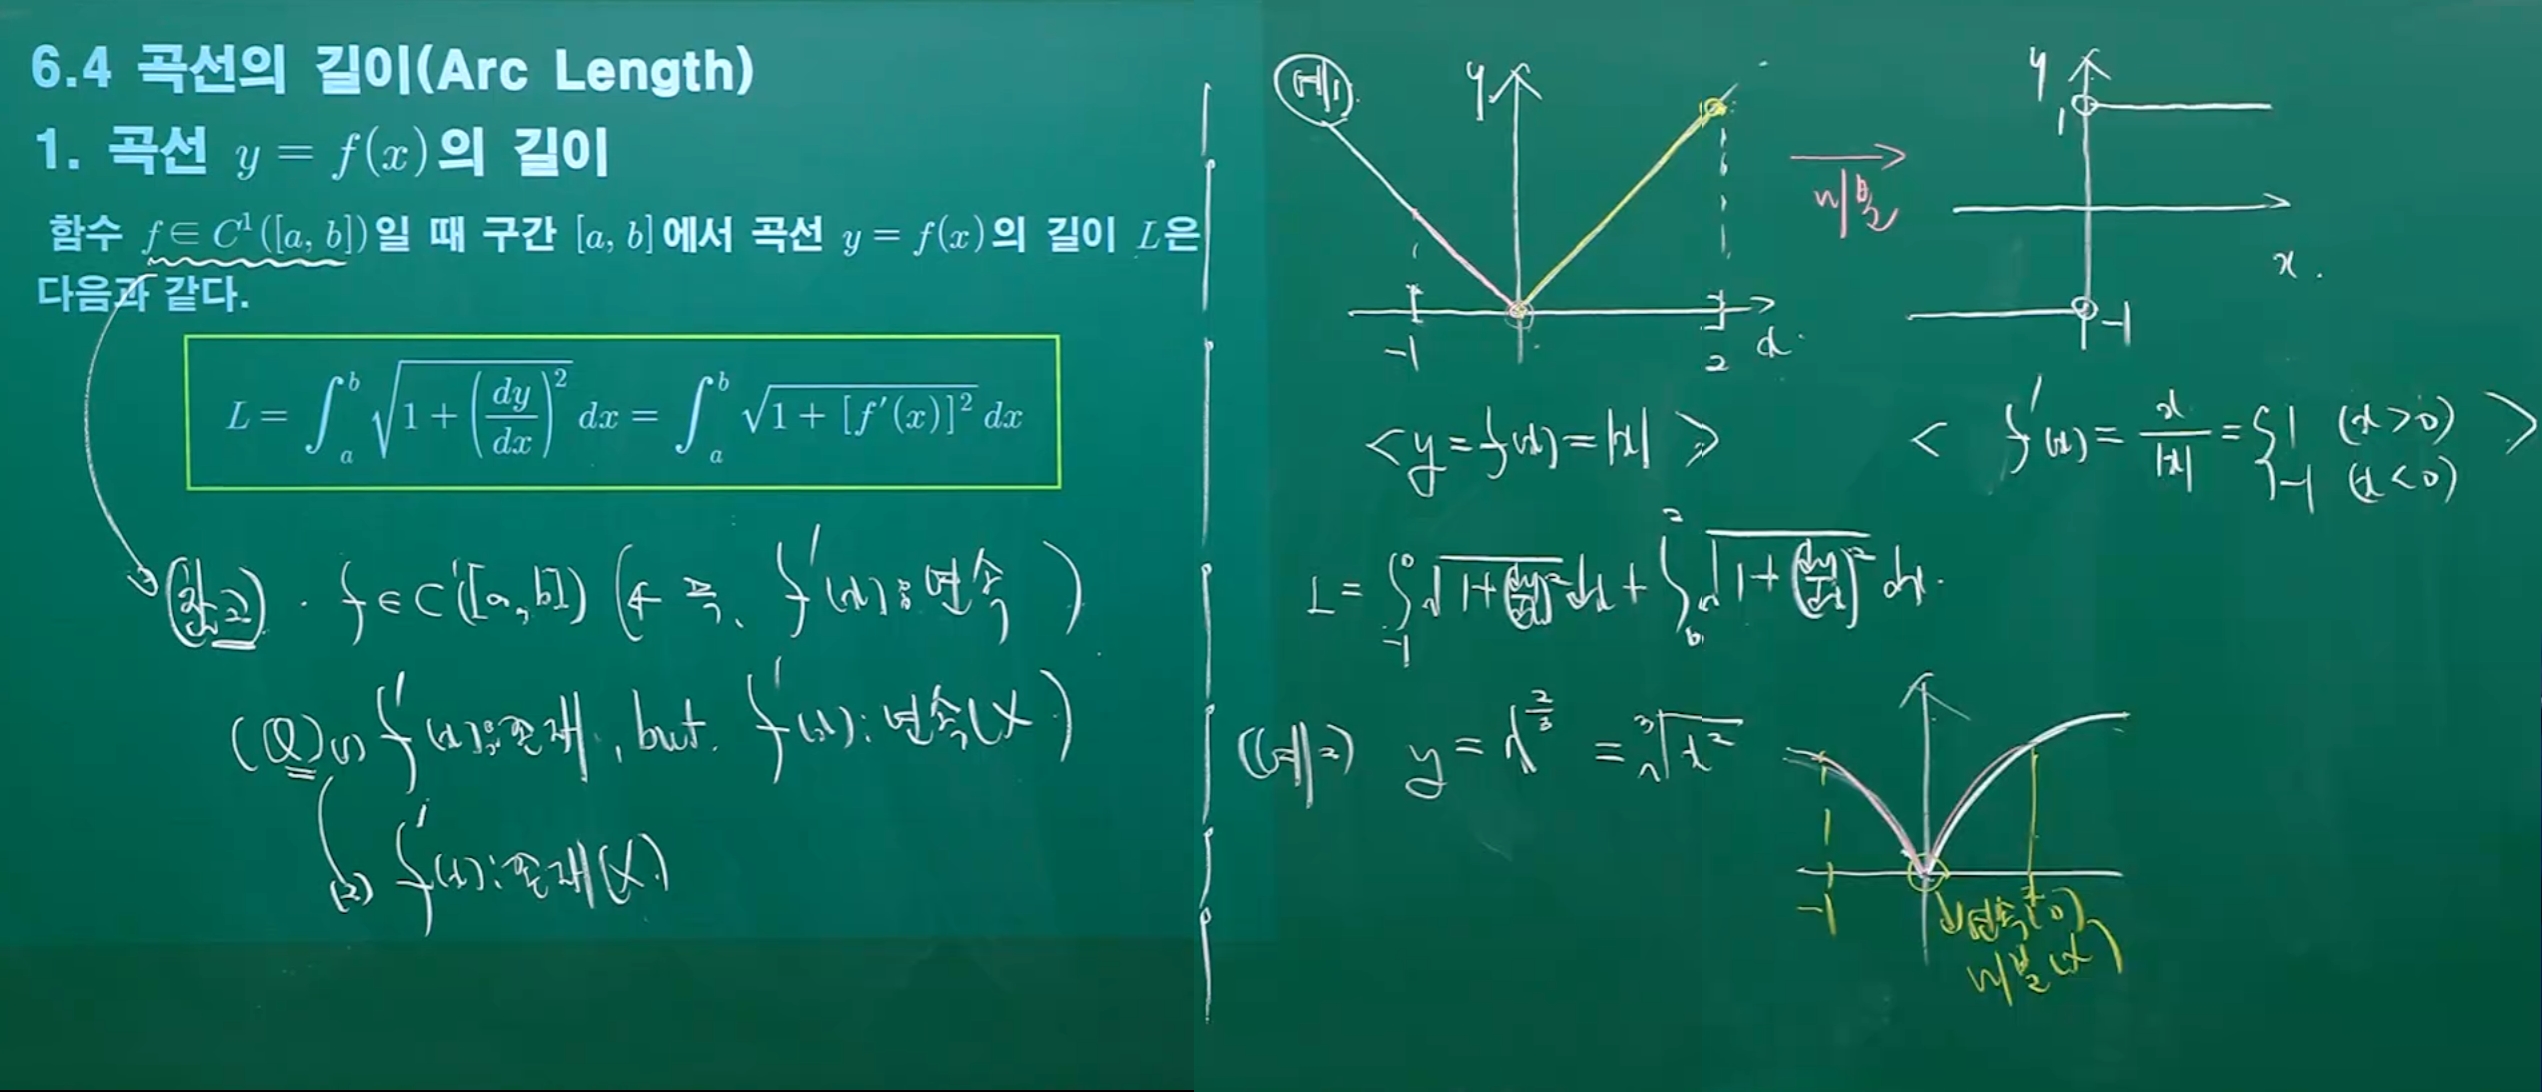 6.4 곡선의 길이(Arc Length)
1. 곡선 y = f(x)의 길이
함수 f ∈ C¹([a, b])일 때 구간 [a, b]에서 곡선 y = f(x)의 길이 L은
다음과 같다.
L = ∫_a^b √(1 + (dy/dx)²) dx = ∫_a^b √(1 + [f′(x)]²) dx
· f ∈ C¹([a, b]) (← 즉, f′(x) : 연속)
(Q) (1) f′(x) : 존재, but f′(x) : 연속(X)
(2) f′(x) : 존재(X)
예1)
y
-1
2
x
미분
y
1
-1
x
< y = f(x) = |x| >
< f′(x) = x/|x| = { 1 (x>0)
-1 (x<0) >
L = ∫_{-1}^0 √(1 + (dy/dx)²) dx + ∫_0^2 √(1 + (dy/dx)²) dx
(예2) y = x^(2/3) = ³√(x²)
-1
연속(O)
미분(X)